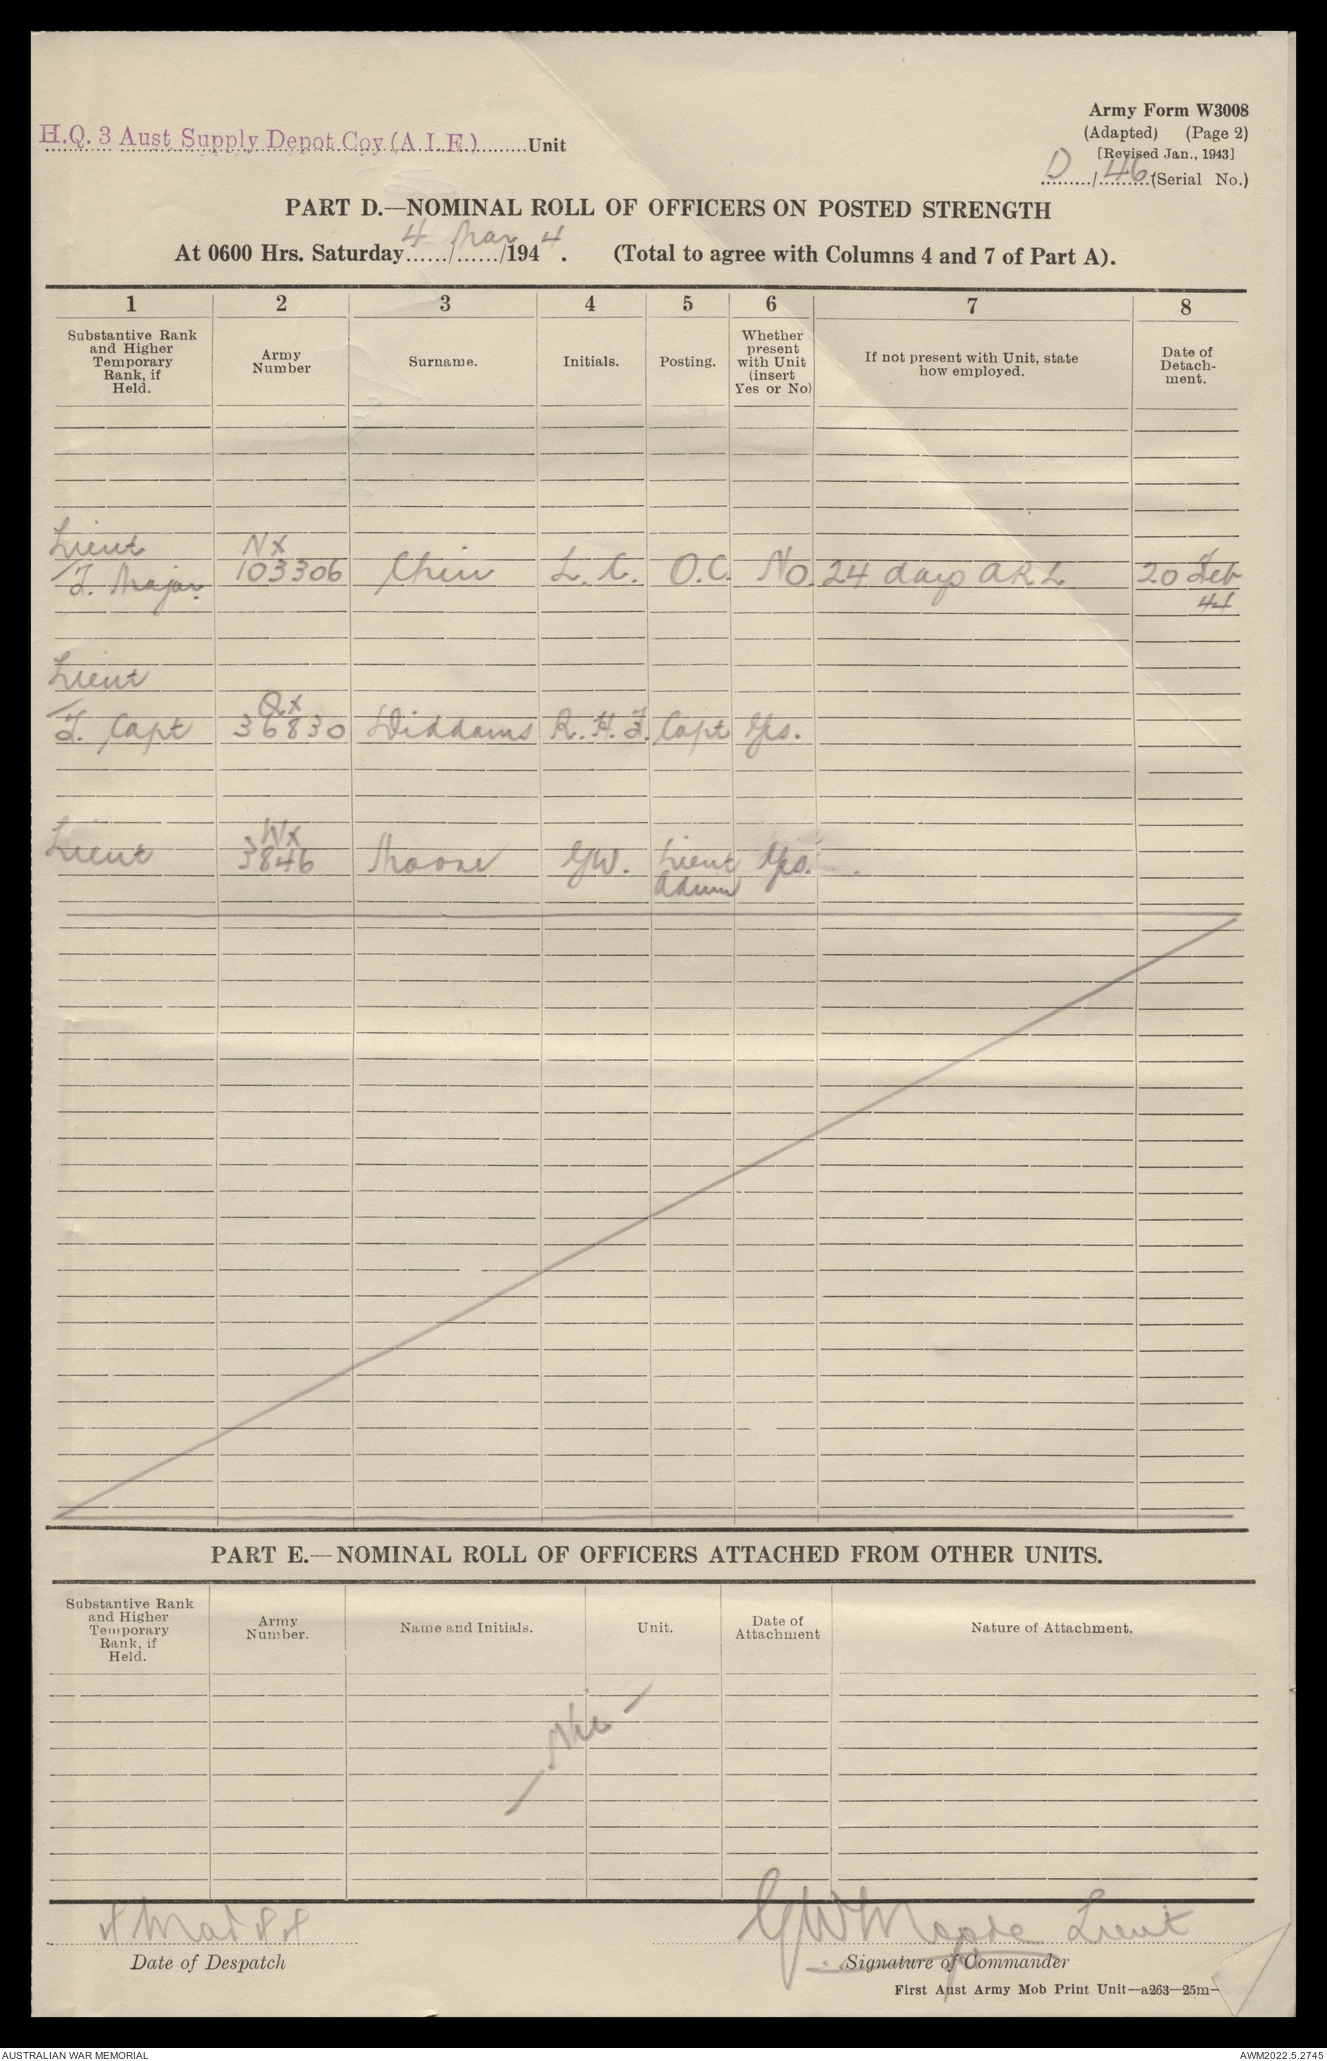 H.Q. 3 Aust Supply Depot Coy (A.I.F.) Unit
Army Form W3008
(Adapted) (Page 2)
[Revised Jan., 1943]
D / 46 (Serial No.)
PART D.—NOMINAL ROLL OF OFFICERS ON POSTED STRENGTH
At 0600 Hrs. Saturday 4 / Mar /194 4 . (Total to agree with Columns 4 and 7 of Part A).
1 2 3 4 5 6 7 8
Substantive Rank and Higher Temporary Rank, if Held.
Army Number
Surname.
Initials.
Posting.
Whether present with Unit (insert Yes or No)
If not present with Unit, state how employed.
Date of Detach- ment.
Lieut NX
/ T. Major. 103306 Chin L. C. O.C. No. 24 days ARL 20 Feb
44
Lieut
/ QX
T. Capt 36830 Widdams R. H. J. Capt Yes.
WX
Lieut 3846 Moore GW. Lieut Yes.
Admn
PART E.—NOMINAL ROLL OF OFFICERS ATTACHED FROM OTHER UNITS.
Substantive Rank and Higher Temporary Rank, if Held.
Army Number.
Name and Initials.
Unit.
Date of Attachment
Nature of Attachment.
— Nil —
4 Mar 44 GW Moore Lieut
Date of Despatch Signature of Commander
First Aust Army Mob Print Unit—a263—25m—
AUSTRALIAN WAR MEMORIAL AWM2022.5.2745